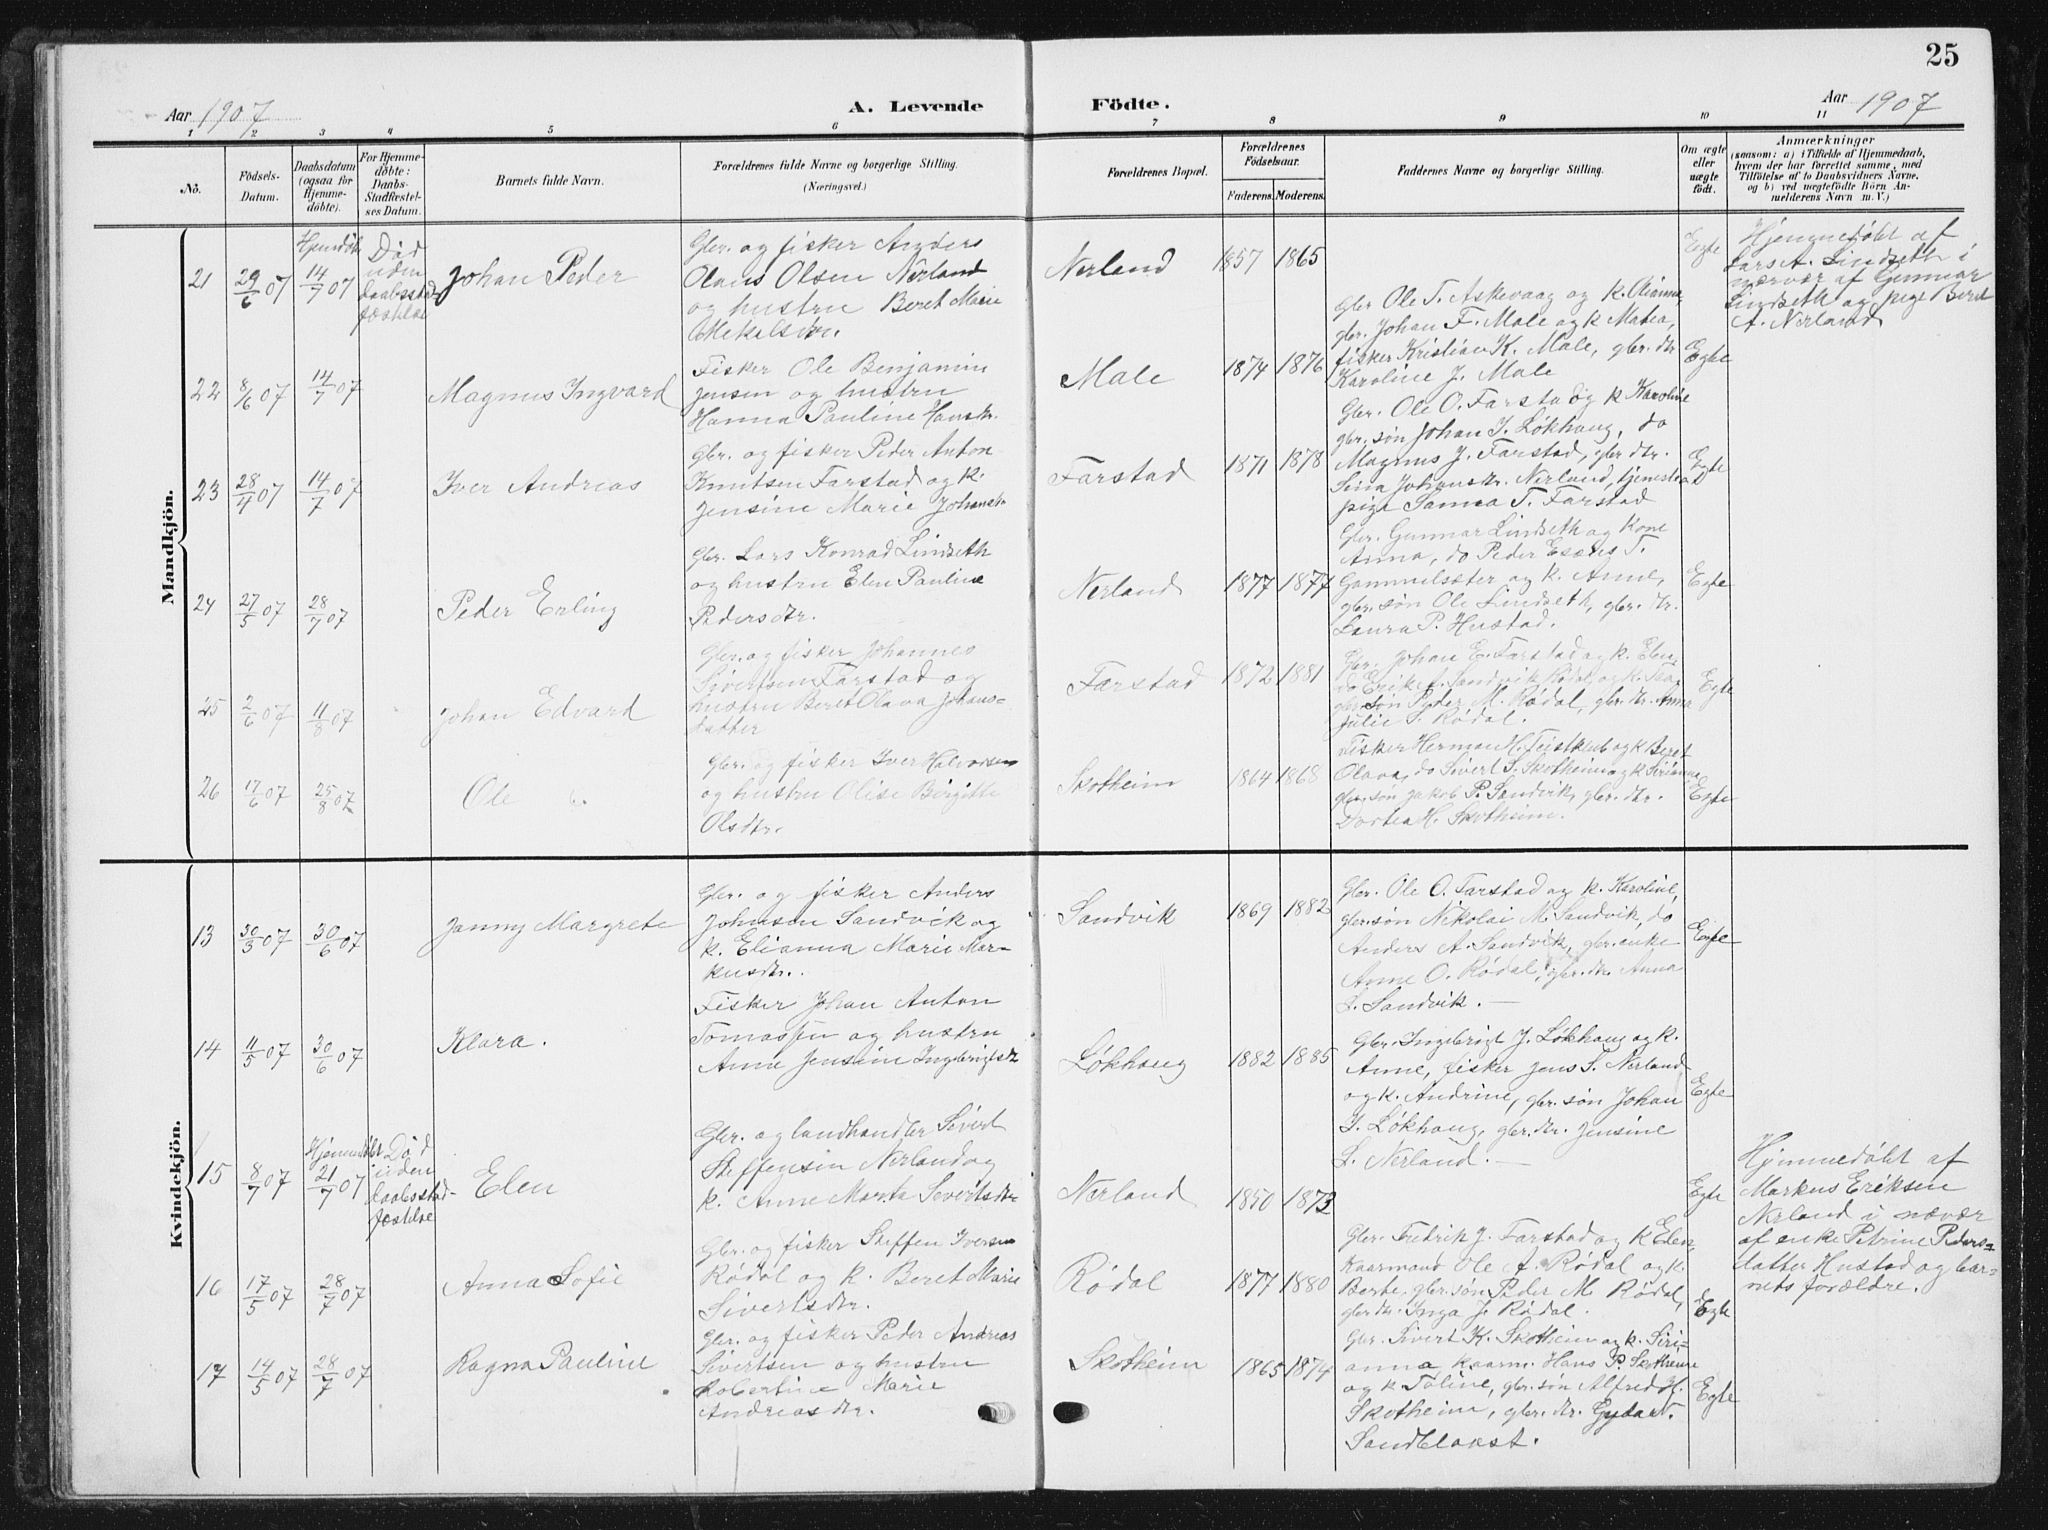 25
Aar 1907
A. Levende
Födte.
Aar 1907
1 2 3 4 5 6 7 8 9 10 11
No.
Födsels-Datum.
Daabsdatum (ogsaa for Hjemme-döbte).
For Hjemme-döbte: Daabs-Stadfæstel-ses Datum.
Barnets fulde Navn.
Forældrenes fulde Navne og borgerlige Stilling.
(Næringsvei.)
Forældrenes Bopæl.
Forældrenes Födselsaar.
Faderens. Moderens.
Faddernes Navne og borgerlige Stilling.
Om ægte eller uægte födt.
Anmærkninger
(saasom: a) i Tilfælde af Hjemmedaab,
hvem der har forrettet samme, med
Tilföielse af to Daabsvidners Navne,
og b) ved uægtefödte Börn An-
melderens Navn m. V.)
Mandkjön.
21 29/6 07
Hjemdøbt 14/7 07
Död
uden
daabsstad
fæstelse
Johan Peder
Gbr. og fisker Anders
Olaus Olsen Nerland
og hustru Beret Marie
Mekalsdtr.
Nerland
1857 1865
Egte
Hjemmedøbt af
Lars A. Lindseth i
nærvær af Gunnar
Lindseth og pige Beret
A. Nerland
22 8/6 07 14/7 07
Magnus Ingvard
Fisker Ole Benjamin
Jensen og hustru
Hanna Pauline Hansdtr.
Male
1874 1876
Gbr. Ole T. Askevaag og k. Olianna,
gbr. Johan F. Male og k Matea,
fisker Kristian K. Male, gbr. dtr
Karoline J. Male
Egte
23 28/4 07 14/7 07
Iver Andreas
Gbr. og fisker Peder Anton
Knutsen Farstad og k.
Jensine Marie Johansdtr
Farstad
1871 1878
Gbr. Ole O. Farstad og k Karoline
gbr. søn Johan I. Løkhaug, do
Magnus J. Farstad, gbr dtr.
Sina Johansdtr. Nerland, tjenestea
pige Sanna T. Farstad
Egte
24 27/5 07 28/7 07
Peder Erling
Gbr. Lars Konrad Lindseth
og hustru Elen Pauline
Pedersdtr.
Nerland
1877 1877
Gbr. Gunnar Lindseth og Kone
Anna, do Peder T.
Gammelsæter og k. Anne,
gbr. søn Ole Lindseth, gbr. dtr.
Laura P. Hustad.
Egte
25 2/6 07 11/8 07
Johan Edvard
Gbr. og fisker Johannes
Sivertsen Farstad og
hustru Beret Olava Johans-
datter
Farstad
1872 1881
Gbr. Johan E. Farstad og k. Elen,
do Erik A. Sandvik Rødal og k.
gbr søn Peder M. Rødal, gbr. dtr. Anna
Julie S. Rødal.
Egte
26 17/6 07 25/8 07
Ole
Gbr. og fisker Iver Halvorsen
og hustru Olise Birgitte
Olsdtr.
Skotheim
1864 1868
Fisker Herman H. og k Beret
Olava, do Sivert S. Skotheim og k Sirianna
gbr. søn Jakob P. Sandvik, gbr. dtr.
Dortea H. Skotheim.
Egte
Kvindekjön.
13 30/3 07 30/6 07
Janny Margrete
Gbr. og fisker Anders
Johnsen Sandvik og
k. Elianna Marie Mar-
kusdtr.
Sandvik
1869 1882
Gbr. Ole O. Farstad og k. Karoline,
gbr. søn Nikolai M. Sandvik, do
Anders A. Sandvik, gbr. enke
Anne O. Rødal, gbr. dtr. Anna
L. Sandvik. —
Egte
14 11/5 07 30/6 07
Klara.
Fisker Johan Anton
Tomassen og hustru
Anne Jensine Ingbrigtsdtr
Løkhaug
1882 1885
Gbr. Ingebrigt J. Løkhaug og k.
Anne, fisker Jens S. Nerland
og k. Andrine, gbr. søn Johan
I. Løkhaug, gbr. dtr. Jensine
L. Nerland. —
Egte
15 8/7 07
Hjemmedøbt 21/7 07
Död
uden
daabsstad-
fæstelse
Elen
Gbr. og landhandler Sivert
Steffensen Nerland og
k. Anne Marta Sivertsdtr
Nerland
1850 1873
Egte
Hjemmedøbt af
Markus Eriksen
Nerland i nævær
af enke Petrine Peders-
datter Hustad og bar-
nets forældre.
16 17/5 07 28/7 07
Anna Sofie
Gbr. og fisker Steffen Iversen
Rødal og k. Beret Marie
Sivertsdtr.
Rødal
1877 1880
Gbr. Fredrik J. Farstad og k Elen,
Kaarmand Ole A. Rødal og k.
Berte, gbr. søn Peder M. Rødal,
gbr. dtr. Inga J. Rødal.
Egte
17 14/5 07 28/7 07
Ragna Pauline
Gbr. og fisker Peder Andreas
Sivertsen og hustru
Robertine Marie
Andreasdtr.
Skotheim
1865 1874
Gbr. Sivert K. Skotheim og k. Siri-
anna kaarm. Hans P. Skotheim
og k Toline, gbr. søn Alfred H.
Skotheim, gbr. dtr. Gyda T.
Sandblaast.
Egte